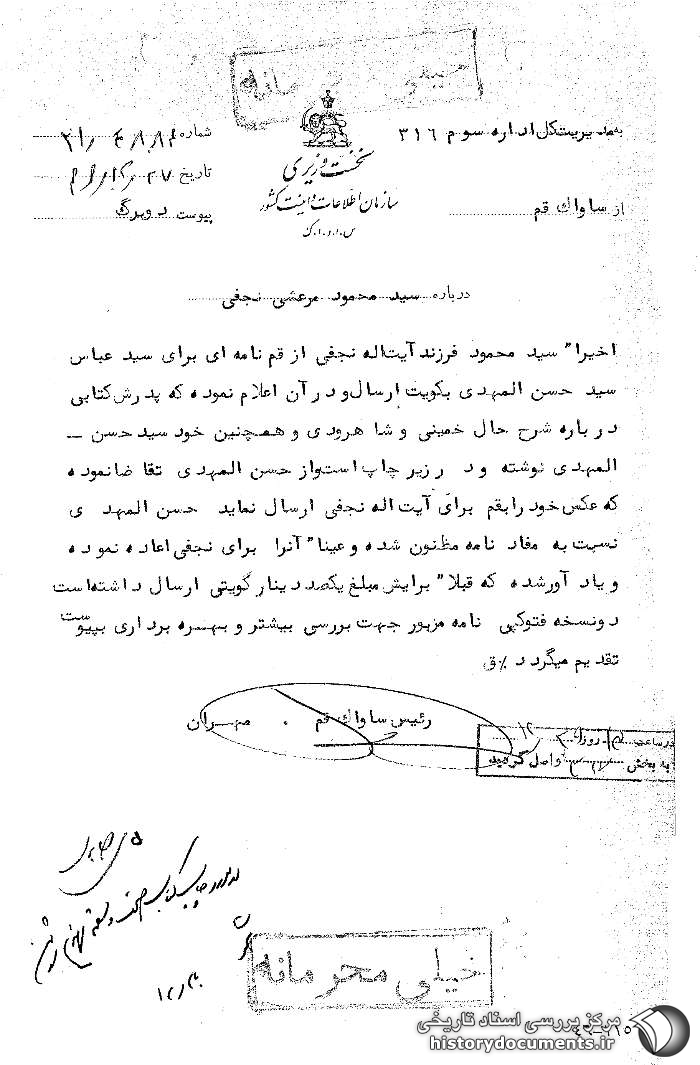 خیلی محرمانه
به مدیریت کل اداره سوم ۳۱۶
از ساواك قم
نخست وزیری
سازمان اطلاعات و امنیت کشور
س.ا.و.ا.ك
شماره
تاریخ
پیوست دوبرگ
درباره سید محمود مرعشی نجفی
اخیرا" سید محمود فرزند آیت اله نجفی از قم نامه ای برای سید عباس
سید حسن المهدی بکویت ارسال و در آن اعلام نموده که پدرش کتابی
درباره شرح حال خمینی و شاهرودی و همچنین خود سید حسن –
المهدی نوشته و در زیر چاپ است و از حسن المهدی تقاضا نموده
که عکس خود را بقم برای آیت اله نجفی ارسال نماید حسن المهدی
نسبت به مفاد نامه مظنون شده و عینا" آنرا برای نجفی اعاده نموده
و یاد آور شده که قبلا" برایش مبلغ یکصد دینار کویتی ارسال داشته است
دونسخه فتوکپی نامه مزبور جهت بررسی بیشتر و بهره برداری بپیوست
تقدیم میگردد %ق
رئیس ساواك قم . مهران
در ساعت روز
به بخش واصل گردید
خیلی محرمانه
مرکز بررسی اسناد تاریخی
historydocuments.ir